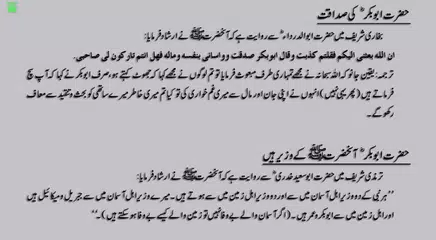 حضرت ابوبکرؓ کی صداقت
بخاری شریف میں حضرت ابوالدرداءؓ سے روایت ہے کہ آنحضرت ﷺ نے ارشاد فرمایا:
ان الله بعثنى اليكم فقلتم كذبت وقال ابوبكر صدقت وواسانى بنفسه وماله فهل انتم تاركون لى صاحبى۔
ترجمہ: یقین جانو کہ اللہ سبحانہ نے مجھے تمہاری طرف مبعوث فرمایا تو تم لوگوں نے مجھے کہا کہ جھوٹ کہتے ہو، صرف ابوبکر نے کہا کہ آپ سچ
فرماتے ہیں (پھر یہی نہیں) انہوں نے اپنی جان اور مال سے میری غم خواری کی تو کیا تم میری خاطر میرے ساتھی کو بحث و تنقید سے معاف
رکھو گے۔
حضرت ابوبکرؓ آنحضرت ﷺ کے وزیر ہیں
ترمذی شریف میں حضرت ابوسعید خدریؓ سے روایت ہے کہ آنحضرت ﷺ نے ارشاد فرمایا:
”ہر نبی کے دو وزیر اہل آسمان میں سے اور دو وزیر اہل زمین میں سے ہوتے ہیں۔ میرے وزیر اہل آسمان میں سے جبریل و میکائیل ہیں
اور اہل زمین میں سے ابوبکر و عمر ہیں۔ (اگر آسمان والے بے وفا نہیں تو زمین والے کیسے بے وفا ہو سکتے ہیں)۔“